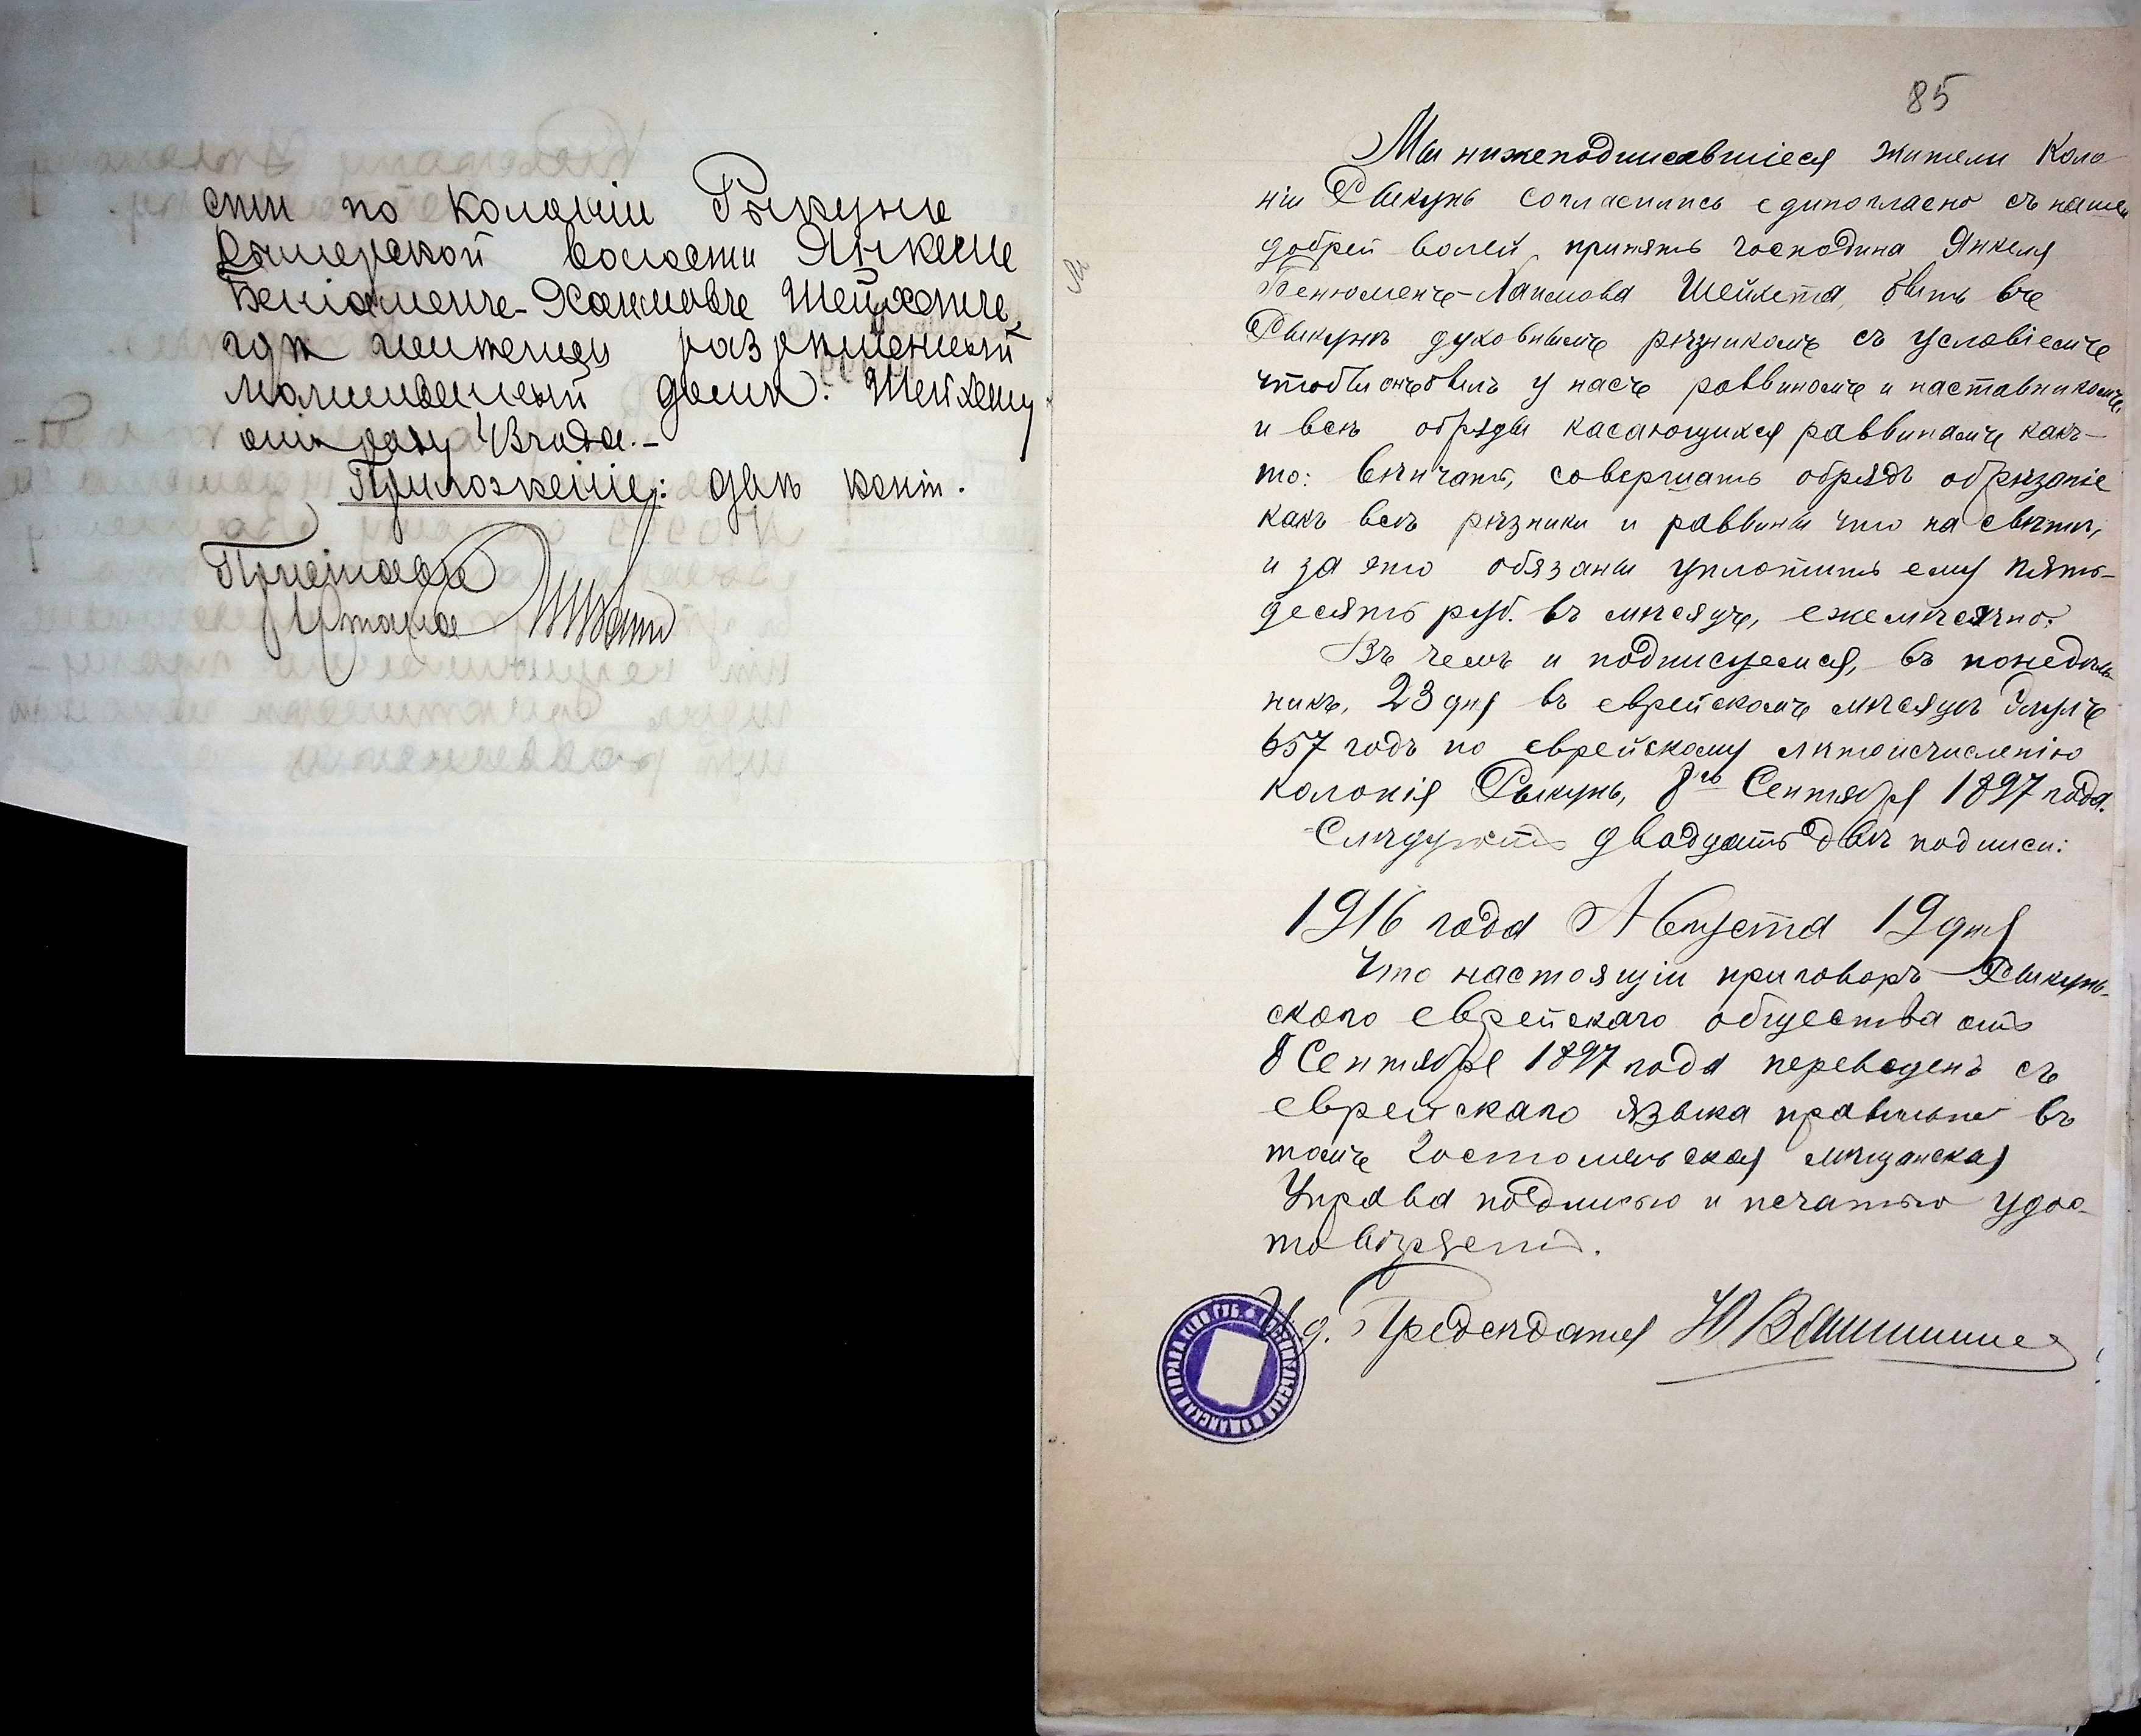 сти по колонiи Рыкунь
Дымерской волости Янкель
Бенiаменъ-Хаимовъ Шейхетъ,
гдѣ имѣется разрѣшенный
молитвенный домъ. Шейхету
отъ роду года.-
Приложенiе: двѣ копiи.
Приставъ
85
Мы нижеподписавшiеся жители Коло-
нiи Рыкунь согласились единогласно съ нашей
доброй волей принять господина Янкеля
Бенюменъ-Хаимова Шейхета, быть въ
Рыкунѣ духовнымъ рѣзникомъ съ условiемъ
чтобы онъ былъ у насъ раввиномъ и наставникомъ,
и всѣ обряды касающихся раввинамъ какъ-
то: вѣнчать, совершать обрядъ обрѣзанiе
какъ всѣ рѣзники и раввины что на свѣтѣ,
и за это обязаны уплотить ему пять-
десятъ руб. въ мѣсяцъ, ежемѣсячно.
Въ чемъ и подписуемся, въ понедѣль-
никъ, 23 дня въ еврейскомъ мѣсяцѣ Элулъ
657 годъ по еврейскому лѣтоисчисленiю
колонiя Рыкунь, 8го Сентября 1897 года.
Слѣдуютъ двадцать двѣ подписи:
1916 года Августа 19 дня
Что настоящiй приговоръ Рыкунь-
скаго еврейскаго общества отъ
8 Сентября 1897 года переведенъ съ
еврейскаго языка правильно въ
томъ Гостомельская мѣщанская
Управа подписью и печатью удос-
товѣряетъ.
И. д. Предсѣдателя